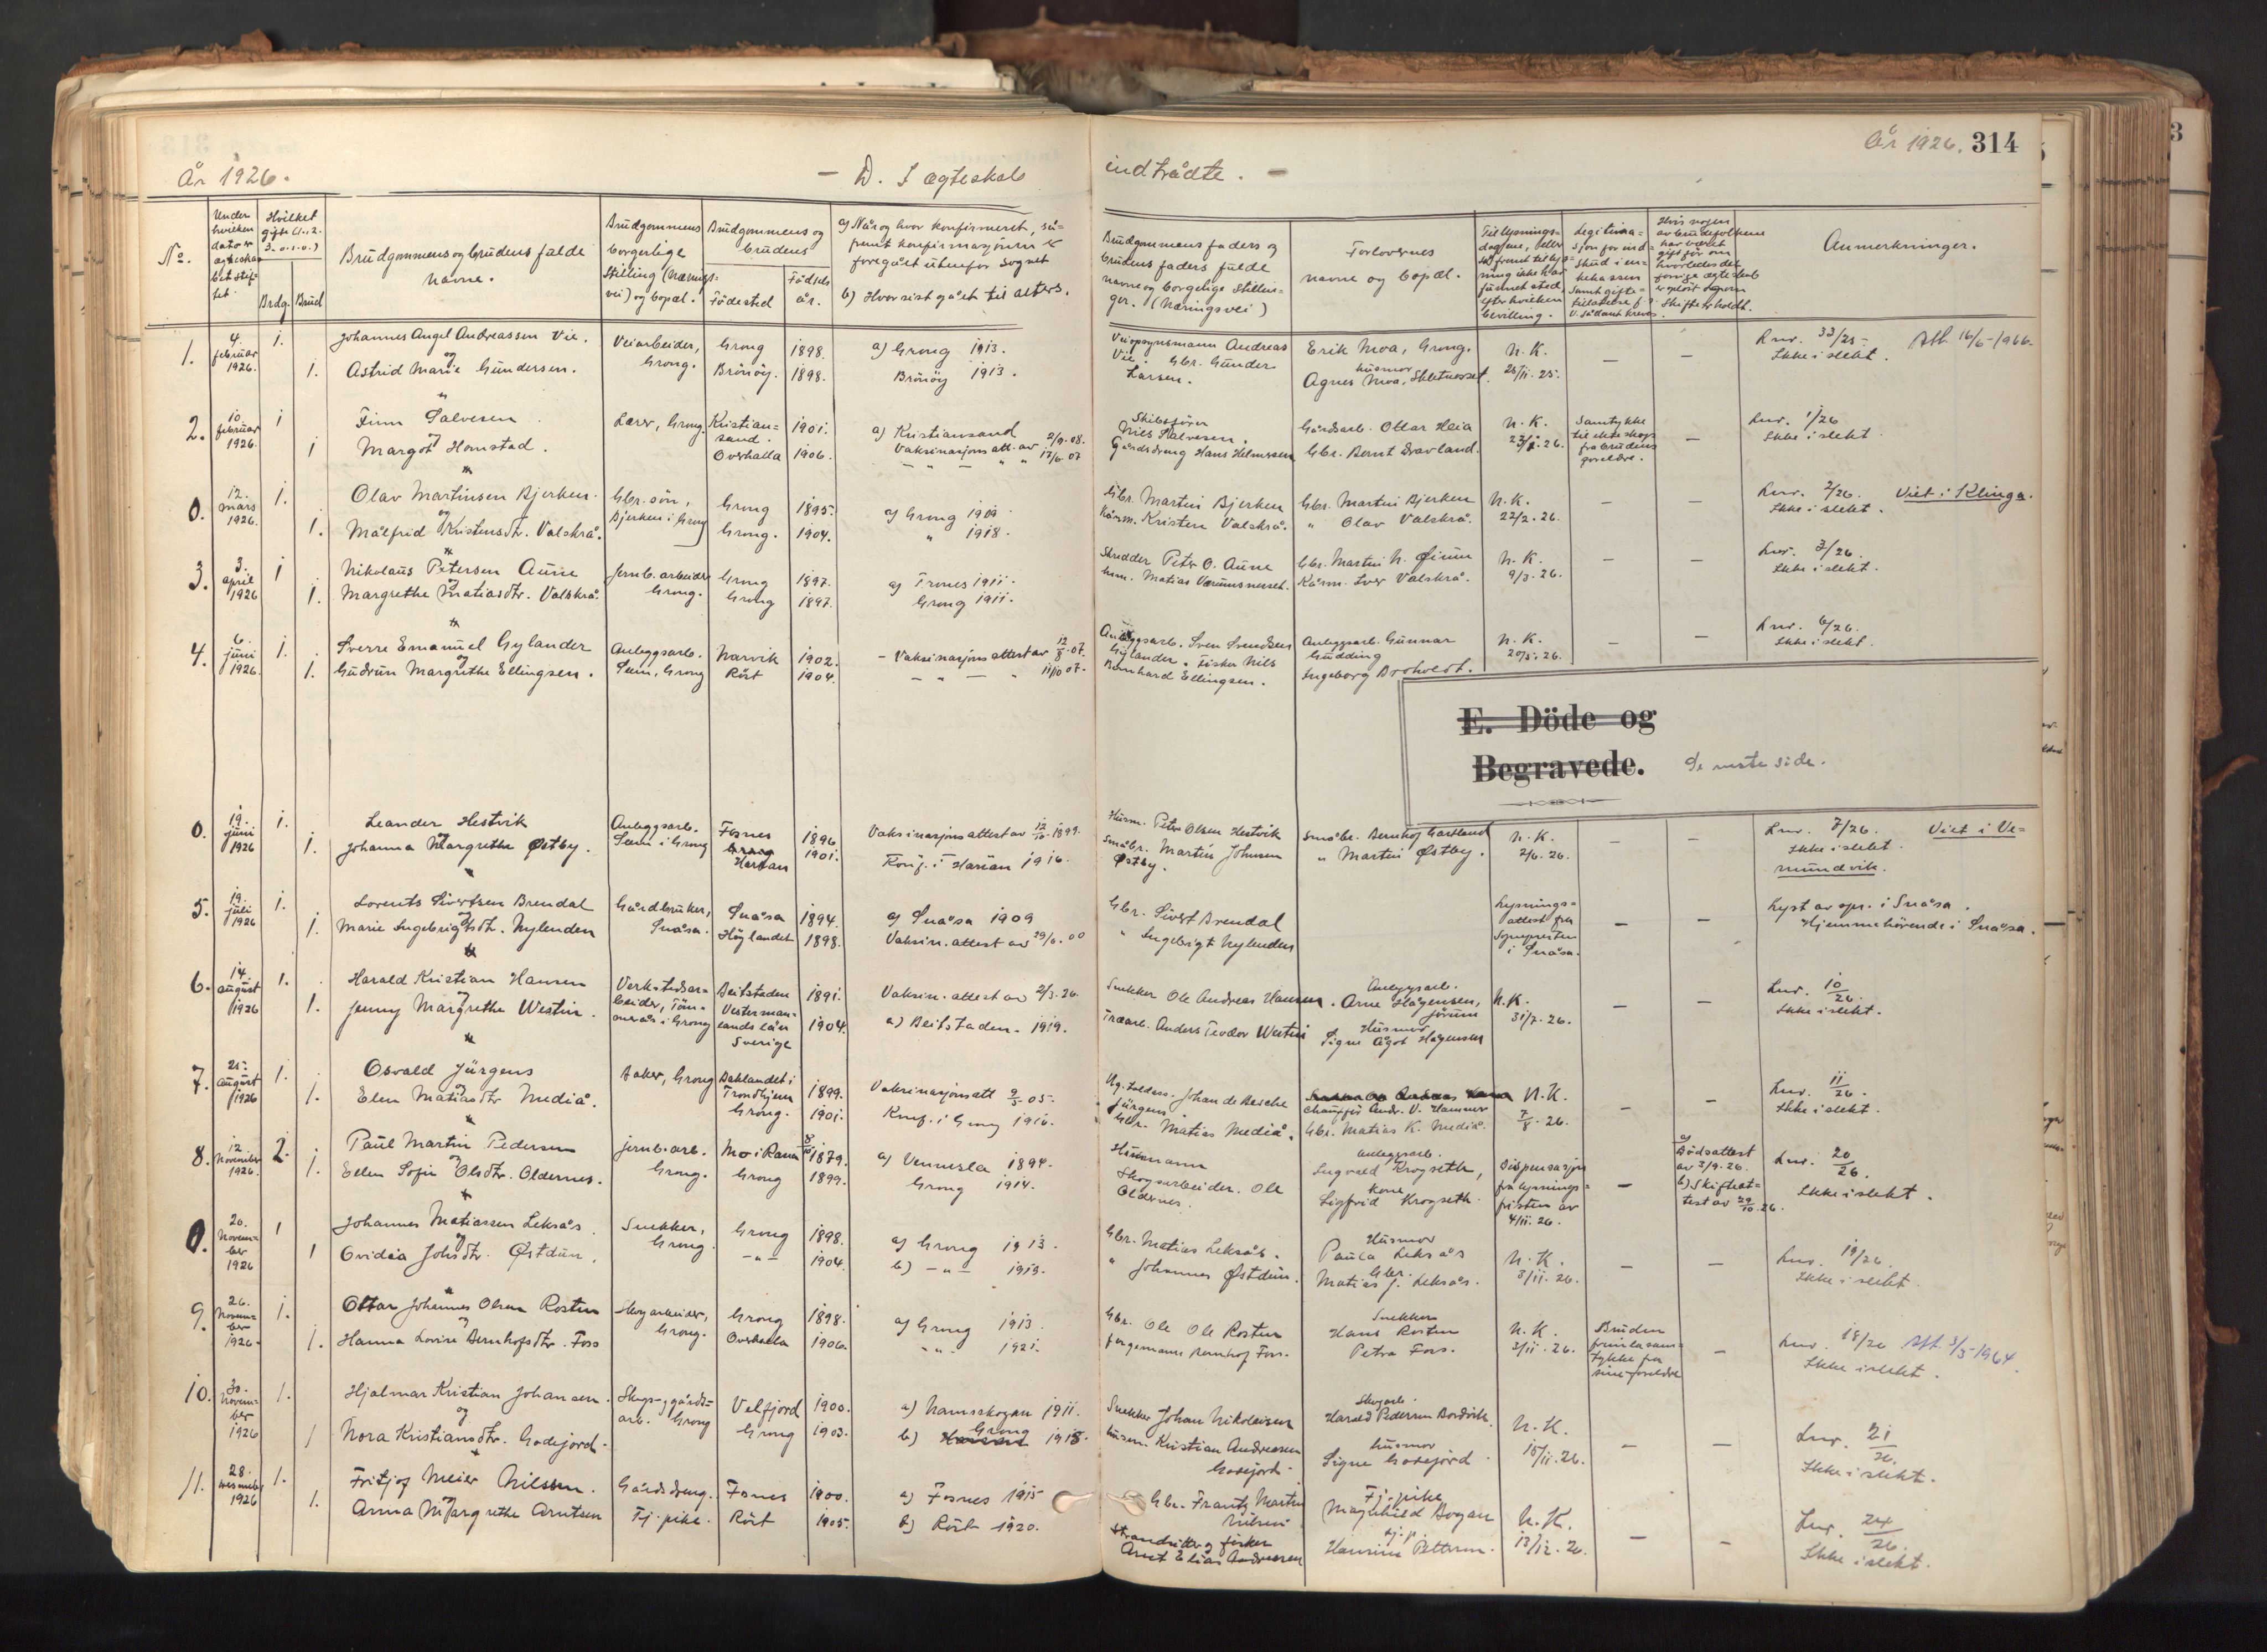 År 1926.
D. I ægteskab
indtrådte.
År 1926. 314
No.
Under hvilken dato er ægteskabet stiftet.
Hvilket gifte (1. 2. 3. o.s.v.)
Brdg. Brud
Brudgommens og brudens fulde navne.
Brudgommens borgerlige stilling (Næringsvei) og bopæl.
Brudgommens og brudens
Födested
Födselsår.
a) Når og hvor konfirmeret, såfremt konfirmasjonen er foregået utenfor sognet
b) Hvor sist gået til alters.
Brudgommens faders og brudens faders fulde navne og borgelige stillinger. (Næringsvei)
Forlovernes navne og bopæl.
Anmerkninger.
1. 4. februar 1926. 1. Johannes Angel Andreassen Vie. Veiarbeider, Grong. Grong 1898. a) Grong 1913. Veiopsynsmann Andreas Vie. Erik Moa, Grong. N.K. 25/11.25. — — Lnr. 33/25 Ikke i slekt. Att. 16/6-1966.
og
1. Astrid Marie Gundersen. Brönöy. 1898. Brönöy 1913. Gbr. Gunder Larsen. husmor Agnes Moa,
2. 10 februar 1926. 1 Finn Salvesen Lærer, Grong. Kristiansand. 1901. a) Kristiansand Skibsfører Nils Salvesen. Gårdsarb. Ottar Heia N.K. Samtykke til ekteskap fra brudens foreldre. — Lnr. 1/26 Ikke i slekt.
og
1 Margot Homstad. Overhalla 1906. Vaksinasjons att. av Gårdsdreng Hans Helmersen Gbr. Bernt Dravland.
0. 12. mars 1926. 1. Olav Martinsen Bjerken. Gbr. sön, Bjerken i Grong Grong 1895. a) Grong 1909 Gbr. Martin Bjerken Gbr. Martin Bjerken N.K. 22/2.26. — — Lnr. 2/26. Ikke i slekt. Viet i Klinga.
og
1. Målfrid Kristensdtr. Valskrå. Grong. 1904. " 1918. Kårm. Kristen Valskrå. " Olav Valskrå.
3. 3. april 1926 1 Nikolaus Petersen Aune Jernb. arbeider Grong. Grong 1897. a) Trones 1911. Skredder Peter O. Aune Gbr. Martin N. N.K. 9/3.26. — — Lnr. 3/26. Ikke i slekt.
og
1. Margrethe Matiasdtr. Valskrå. Grong 1897. Grong 1911. Kårm. Iver Valskrå.
4. 6. juni 1926. 1. Sverre Emanuel Gylander Anleggsarb. Seem, Grong Narvik 1902. – Vaksinasjons attest av 12/8.07. Anleggsarb. Sven Svendsen Gylander. Anleggsarb. Gunnar Gudding N.K. 20/5.26. — — Lnr. 6/26. Ikke i slekt.
og
1. Gudrun Margrethe Ellingsen. Röst 1904. 11/10 07. Fisker Nils Bernhard Ellingsen. Ingeborg Broholdt.
E. Döde og
Begravede. Se neste side.
0. 19. juni 1926 1. Leander Hestvik Anleggsarb. Seem i Grong Fosnes 1896 Vaksinasjonsattest av 12/10.1899. Husm. Peter Olsen Hestvik Småbr. Bernhof Gartland N.K. 2/6.26. — — Lnr. 7/26. Ikke i slekt. Viet i Vemundvik.
og
1. Johanna Margrethe Østby. Grong Harran 1901. Konf. i Harran 1916. Småbr. Martin Johnsen Østby. " Martin Østby.
5. 19. juli 1926 1. Lorents Sivertsen Brendal Gårdbruker, Snåsa. Snåsa 1894. a) Snåsa 1909 Gbr. Sivert Brendal Lysnings-attest fra Sognepresten i Snåsa. — — Lyst av spr. i Snåsa. Hjemmehörende i Snåsa.
og
1. Marie Ingebrigtsdtr. Nylenden Höylandet 1898. Vaksin. attest av 29/6.00 " Ingebrigt Nylenden
6. 14. august 1926 1. Harald Kristian Hansen Verkstedsarbeider, Tömmerås i Grong Beitstaden 1891. Vaksin. attest av 2/3.26. Snekker Ole Andreas Hansen. Anleggsarb. Arne Hågensen, Jörum N.K. 31/7.26. — — Lnr. 10/26. Ikke i slekt.
og
1. Jenny Margrethe Westin. Vestermanlands län Sverige 1904. a) Beitstaden. 1919. Træarb. Anders Teodor Westin Husmor Signe Ågot Hågensen
7. 25. august 1926 1. Osvald Jürgens Baker, Grong Baklandet i Trondhjem 1899. Vaksinasjonsatt 9/5 05. Johan de Besche Jürgens. Chauffør Andr. V. Hammer N.K. 7/8.26. — — Lnr. 11/26. Ikke i slekt.
og
1. Elen Matiasdtr Mediå. Grong. 1901. Konf. i Grong 1916. Gbr. Matias Mediå. Gbr. Matias K. Mediå.
8. 12 November 1926. 2. Paul Martin Pedersen Jernb.arb. Grong. Mo i Rana 1879. a) Vennesla 1894. Husmann Anleggsarb. Ingvald Krogseth, Dispensasjon fra lysningsfristen av 4/11.26. — a) Dödsattest av 3/9.26. b) Skifteattest av 29/10.26. Lnr. 20/26. Ikke i slekt.
og
1. Ellen Sofie Olsdtr. Oldernes. Grong 1899. Grong 1914. Skogsarbeider. Ole Oldernes. kone Sigfrid Krogseth.
0. 20. November 1926 1 Johannes Matiassen Leksås Snekker, Grong. Grong 1898. a) Grong 1913. Gbr. Matias Leksås. Husmor Paula Leksås N.K. 3/11.26. — — Lnr. 19/26. Ikke i slekt.
og
1 Ovidia Johsdtr. Østdun. -"- 1904. b) -"- 1919. " Johannes Østdun. Gbr. Matias J. Leksås.
9. 26. November 1926. 1. Ottar Johannes Olsen Rosten Skogarbeider, Grong. Grong 1898. a) Grong 1913. Gbr. Ole Ols Rosten Snekker Hans Rosten N.K. 3/11.26. — Lnr. 18/26 Att. 3/5-1964. Ikke i slekt.
og
1. Hanna Lovise Bernhofsdtr. Foss Overhalla 1906. -"- 1921. Bernhof Foss. Petra Foss.
10. 30. November 1926 1. Hjalmar Kristian Johansen. Skogs- og gårdsarb. Grong Velfjord 1900. a) Namsskogan 1911. Snekker Johan Nikolaisen Skogarb. Harald Pedersen N.K. 15/11.26. — — Lnr. 21/26. Ikke i slekt.
og
1 Nora Kristiansdtr. Godejord. Grong 1903. b) Grong 1918. Husm. Kristian Andreasen Godejord. husmor Signe Godejord.
11. 28. desember 1926 1. Fritjof Meier Nilssen. Gårdsdreng. Fosnes 1900. a) Fosnes 1915 Gbr. Frantz Martin Nilsen Tj.pike Maghild Bogan N.K. 13/12.26. — — Lnr. 24/26. Ikke i slekt.
og
1. Anna Margrethe Arntsen Tj.pike. Röst 1905. b) Röst 1920. Strandsitter og fisker Arnt Elias Andreasen Tj.p. Hansine Pettersen.